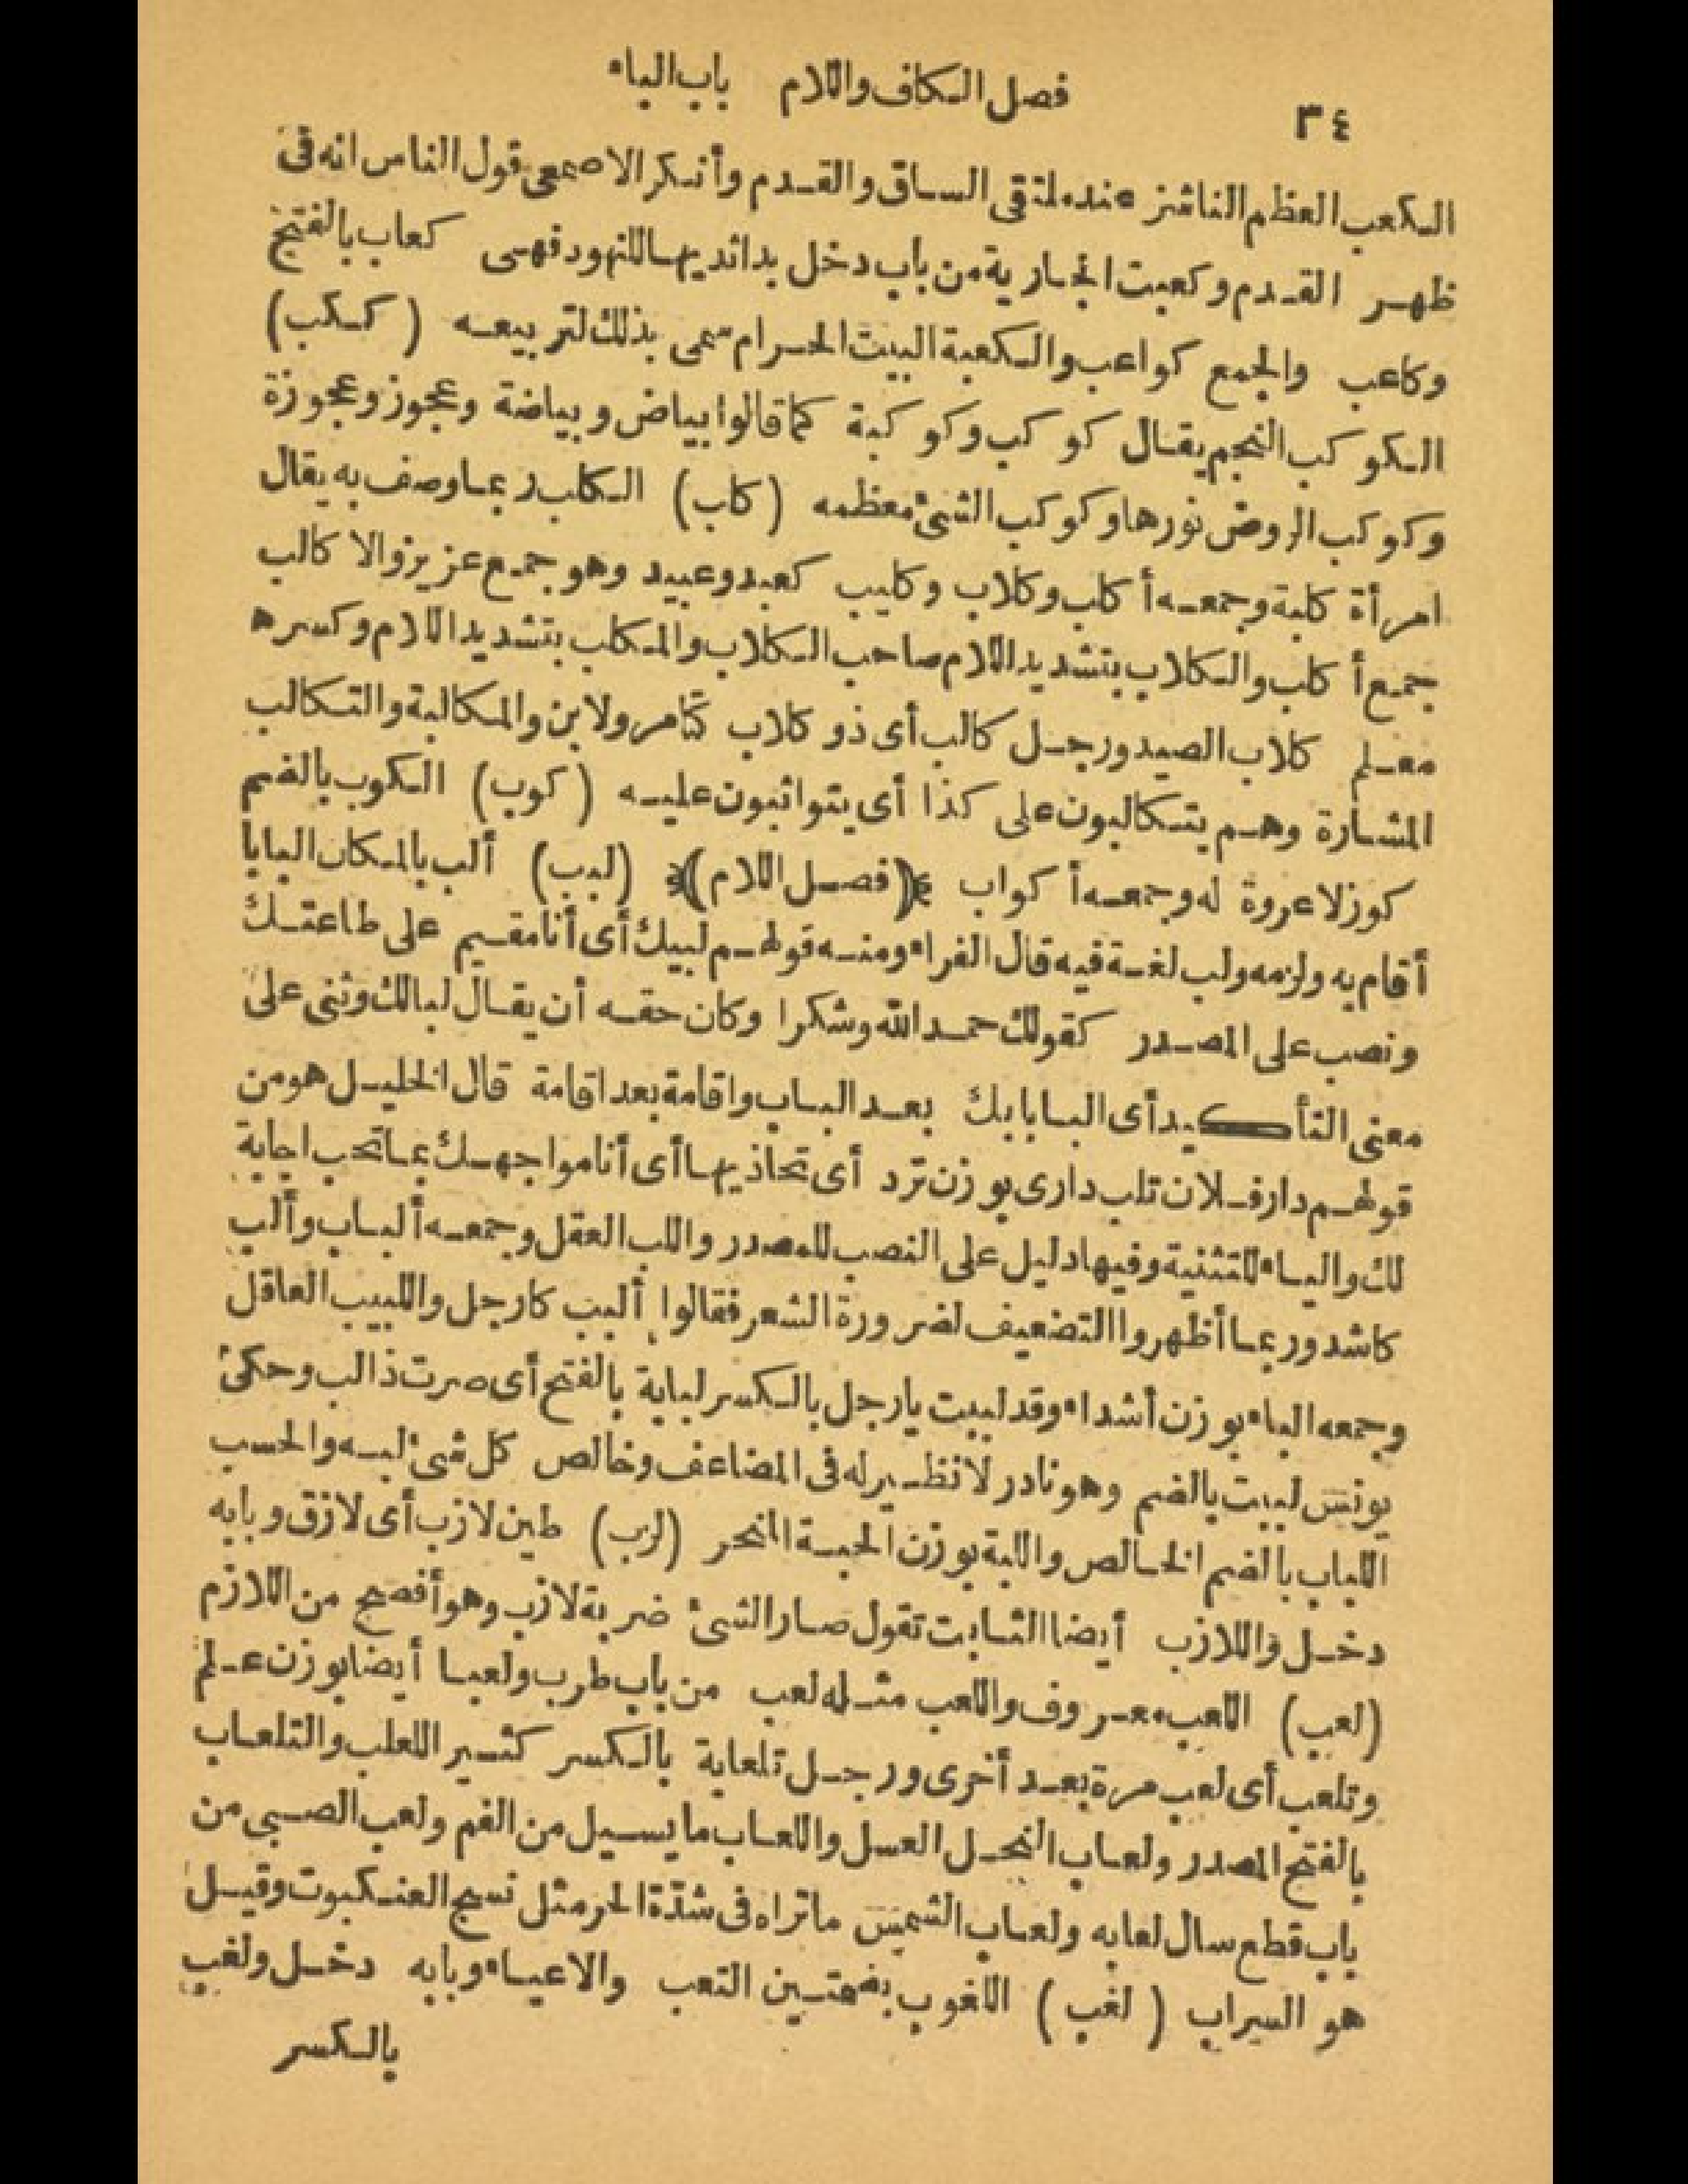 ٣٤ فصل الكاف واللام باب الباء
الكعب العظم الناشز عند ملتقى الساق والقدم وأنكر الاصمعى قول الناس انه فى
ظهر القدم وكعبت الجارية من باب دخل بدا ثديها للنهود فهى كعاب بالفتح
وكاعب والجمع كواعب والكعبة البيت الحرام سمى بذلك لتربيعه (ككب)
الكوكب النجم يقال كوكب وكوكبة كما قالوا بياض وبياضة وعجوز وعجوزة
وكوكب الروض نورها وكوكب الشئ معظمه (كلب) الكلب ربما وصف به يقال
امرأة كلبة وجمعه أكلب وكلاب وكليب كعبد وعبيد وهو جمع عزيز والا كالب
جمع أكلب والكلاب بتشديد اللام صاحب الكلاب والمكلب بتشديد اللام وكسرها
معلم كلاب الصيد ورجل كالب أى ذو كلاب كتامر ولابن والمكالبة والتكالب
المشارة وهم يتكالبون على كذا أى يتواثبون عليه (كوب) الكوب بالضم
كوز لا عروة له وجمعه أكواب ﴿(فصل اللام)﴾ (لبب) ألب بالمكان البابا
أقام به ولزمه ولب لغة فيه قال الفراء ومنه قولهم لبيك أى أنا مقيم على طاعتك
ونصب على المصدر كقولك حمد الله وشكرا وكان حقه أن يقال لبالك وثنى على
معنى التأكيد أى البابا بك بعد الباب واقامة بعد اقامة قال الخليل هو من
قولهم دار فلان تلب دارى بوزن ترد أى تحاذيها أى أنا مواجهك بما تحب اجابة
لك والياء للتثنية وفيها دليل على النصب للمصدر واللب العقل وجمعه ألباب وألب
كاشد وربما أظهروا التضعيف لضرورة الشعر فقالوا ألبب كارجل واللبيب العاقل
وجمعه الباء بوزن أشداء وقد لببت يارجل بالكسر لبابة بالفتح أى صرت ذا لب وحكى
يونس لببت بالضم وهو نادر لا نظير له فى المضاعف وخالص كل شئ لبه والحسب
اللباب بالضم الخالص واللبة بوزن الحبة المنحر (لزب) طين لازب أى لازق وبابه
دخل واللازب أيضا الثابت تقول صار الشئ ضربة لازب وهو أفصح من اللازم
(لعب) اللعب معروف واللعب مثله لعب من باب طرب ولعبا أيضا بوزن علم
وتلعب أى لعب مرة بعد أخرى ورجل تلعابة بالكسر كثير اللعلب والتلعاب
بالفتح المصدر ولعاب النحل العسل واللعاب ما يسيل من الفم ولعب الصبى من
باب قطع سال لعابه ولعاب الشمس ما تراه فى شدة الحر مثل نسج العنكبوت وقيل
هو السراب (لغب) اللغوب بضمتين التعب والاعياء وبابه دخل ولغب
بالكسر